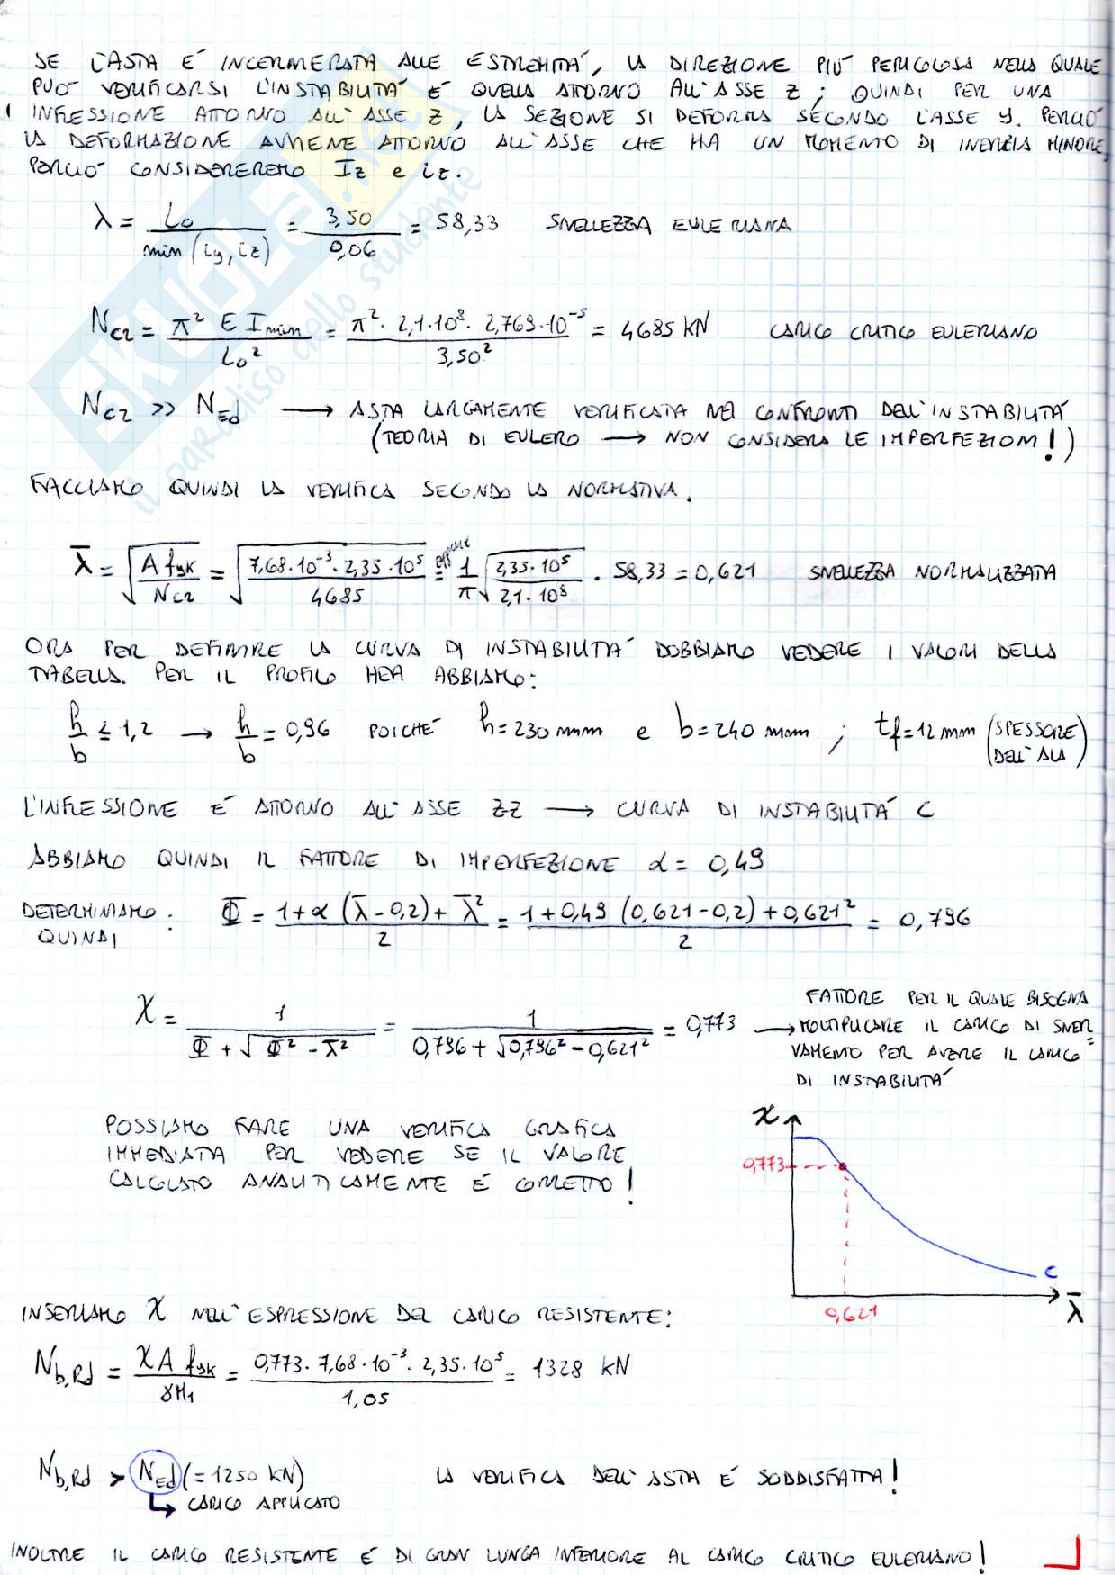 SE L'ASTA É INCERNIERATA ALLE ESTREMITÁ, LA DIREZIONE PIÚ PERICOLOSA NELLA QUALE
PUÓ VERIFICARSI L'INSTABILITÁ É QUELLA ATTORNO ALL'ASSE Z; QUINDI PER UNA
INFLESSIONE ATTORNO ALL'ASSE Z, LA SEZIONE SI DEFORMA SECONDO L'ASSE Y. PERCIÓ
LA DEFORMAZIONE AVVIENE ATTORNO ALL'ASSE CHE HA UN MOMENTO DI INERZIA MINORE,
PERCIÓ CONSIDEREREMO Iz e iz.
λ = L₀ / min(iy, iz) = 3,50 / 0,06 = 58,33 SNELLEZZA EULERIANA
Ncr = π² E Imin / L₀² = π² · 2,1·10⁸ · 2,769·10⁻⁵ / 3,50² = 4685 KN CARICO CRITICO EULERIANO
Ncr >> NEd → ASTA LARGAMENTE VERIFICATA NEI CONFRONTI DELL'INSTABILITÁ
(TEORIA DI EULERO → NON CONSIDERA LE IMPERFEZIONI!)
FACCIAMO QUINDI LA VERIFICA SECONDO LA NORMATIVA.
λ̄ = √(A fyk / Ncr) = √(7,68·10⁻³ · 2,35·10⁵ / 4685) oppure = 1/π √(2,35·10⁵ / 2,1·10⁸) · 58,33 = 0,621 SNELLEZZA NORMALIZZATA
ORA PER DEFINIRE LA CURVA DI INSTABILITÁ DOBBIAMO VEDERE I VALORI DELLA
TABELLA. PER IL PROFILO HEA ABBIAMO:
h/b ≤ 1,2 → h/b = 0,96 POICHÉ h = 230 mm e b = 240 mm ; tf = 12 mm (SPESSORE
DELL'ALA)
L'INFLESSIONE É ATTORNO ALL'ASSE ZZ → CURVA DI INSTABILITÁ C
ABBIAMO QUINDI IL FATTORE DI IMPERFEZIONE α = 0,49
DETERMINIAMO QUINDI : Φ = 1+α(λ̄-0,2)+λ̄² / 2 = 1+0,49 (0,621-0,2)+0,621² / 2 = 0,796
χ = 1 / Φ+√Φ²-λ̄² = 1 / 0,796+√0,796²-0,621² = 0,773 →
FATTORE PER IL QUALE BISOGNA
MOLTIPLICARE IL CARICO DI SNER-
VAMENTO PER AVERE IL CARICO
DI INSTABILITÁ
POSSIAMO FARE UNA VERIFICA GRAFICA
IMMEDIATA PER VEDERE SE IL VALORE
CALCOLATO ANALITICAMENTE É CORRETTO!
χ
0,773
c
0,621
λ̄
INSERIAMO χ NELL'ESPRESSIONE DEL CARICO RESISTENTE:
Nb,Rd = χ A fyk / γM₁ = 0,773 · 7,68·10⁻³ · 2,35·10⁵ / 1,05 = 1328 KN
Nb,Rd > NEd (=1250 KN) LA VERIFICA DELL'ASTA É SODDISFATTA!
↳ CARICO APPLICATO
INOLTRE IL CARICO RESISTENTE É DI GRAN LUNGA INFERIORE AL CARICO CRITICO EULERIANO!
SKUOLA.net
il paradiso dello studente